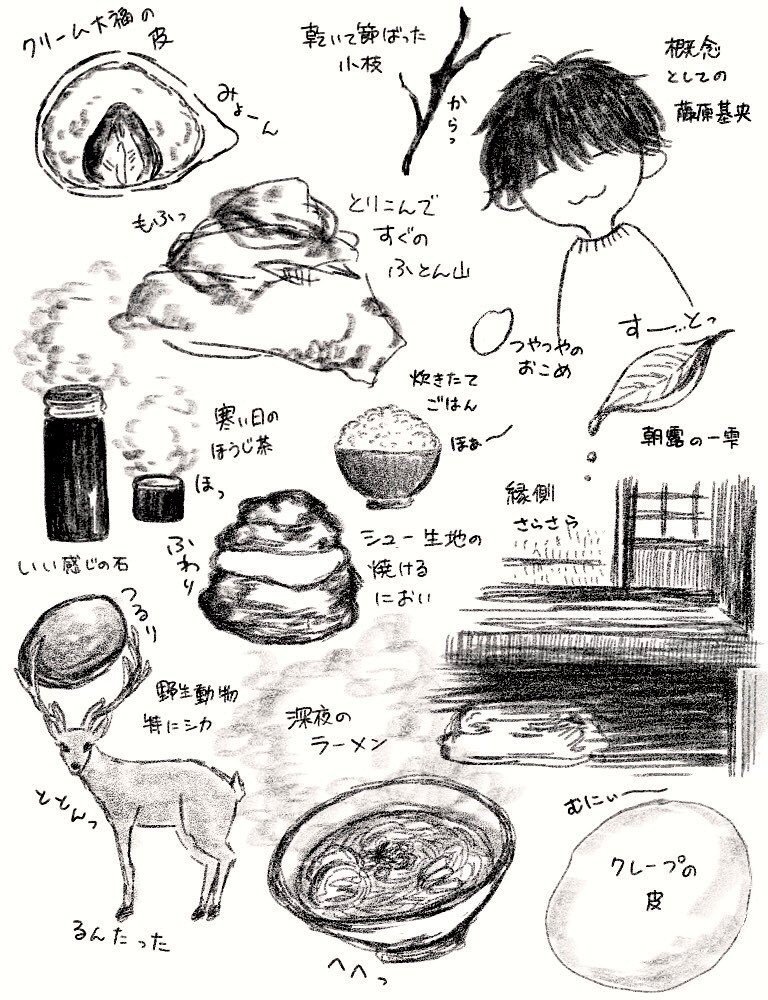 クリーム大福の
皮
みょーん
乾いて節ばった
小枝
からっ
概念
としての
藤原基央
もふっ
とりこんで
すぐの
ふとん山
つやつやの
おこめ
すー…とっ
朝露の一雫
炊きたて
ごはん
ほぁー
寒い日の
ほうじ茶
ほっ
縁側
さらさら
シュー生地の
焼ける
におい
ふわり
いい感じの石
つるり
野生動物
特にシカ
ととんっ
るんたった
深夜の
ラーメン
へへっ
むにぃー
クレープの
皮